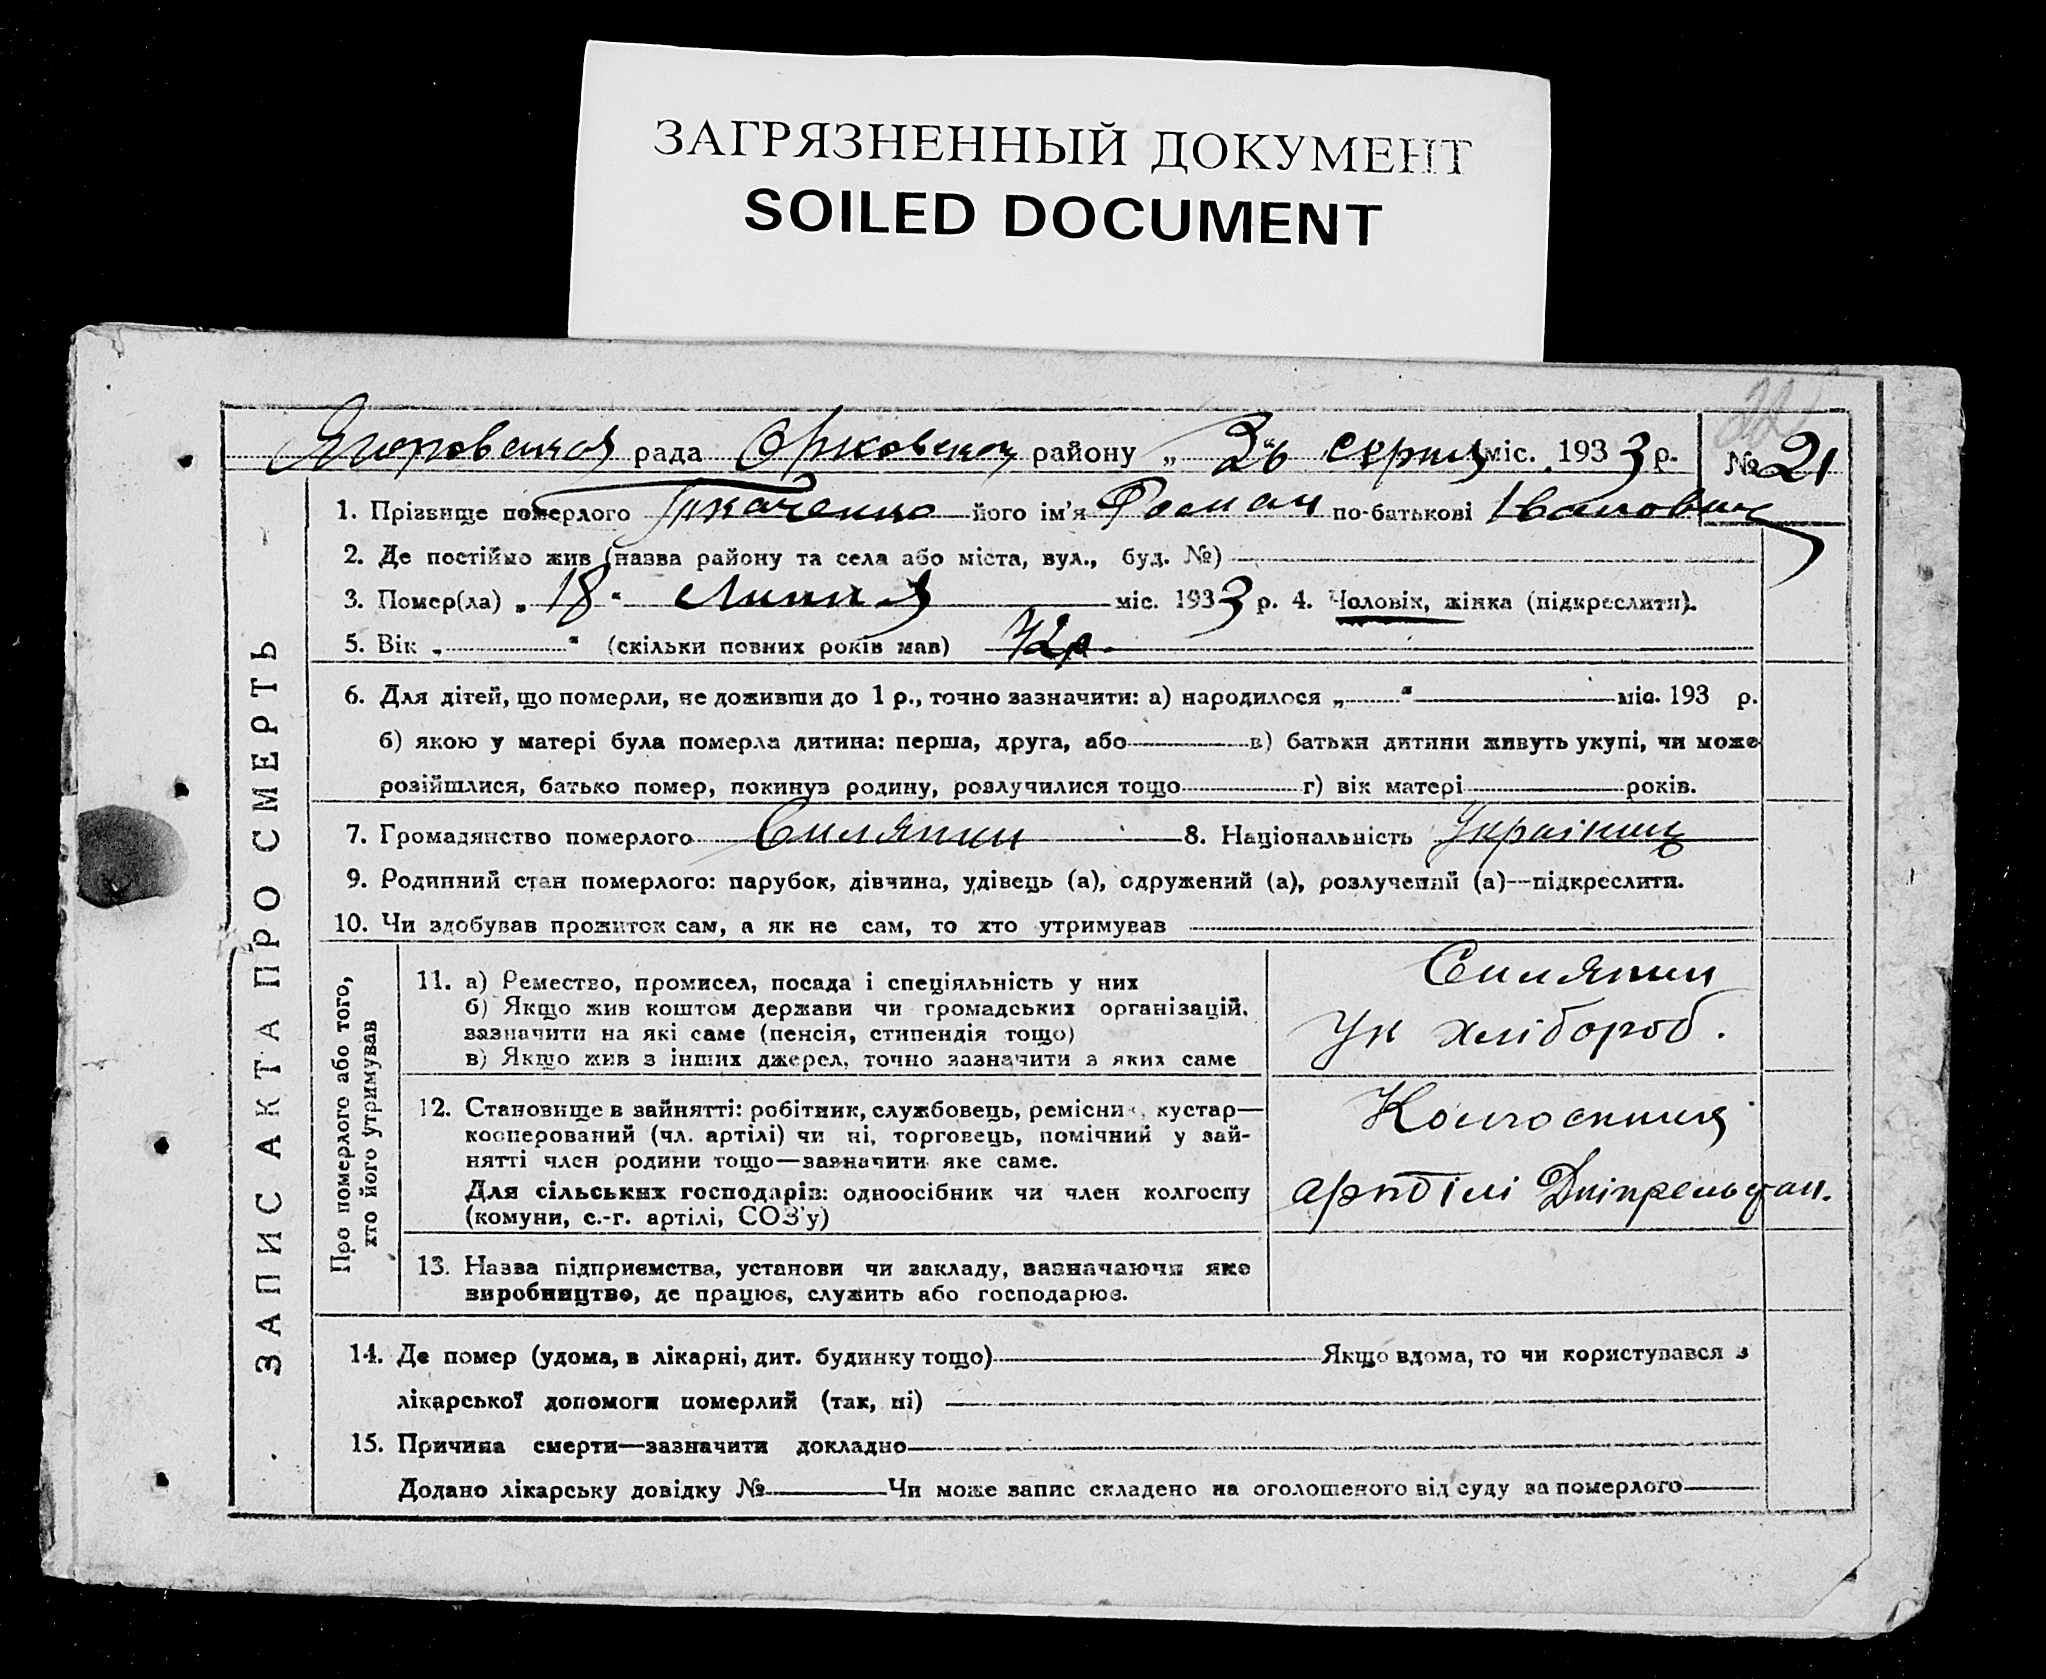 ЗАГРЯЗНЕННЫЙ ДОКУМЕНТ
SOILED DOCUMENT
22
рада района району „ серпня міс. 1933 р. № 21
1. Прізвище померлого Ткаченко його ім'я Роман по-батькові Іванович
2. Де постійно жив (назва району та села або міста, вул., буд. №)
3. Помер(ла) „ 18 “ Липня міс. 1933 р. 4. Чоловік, жінка (підкреслити).
5. Вік „ “ (скільки повних років мав) 72 р.
6. Для дітей, що померли, не доживши до 1 р., точно зазначити: а) народилося „ “ міс. 193 р.
б) якою у матері була померла дитина: перша, друга, або в) батьки дитини живуть укупі, чи може
розійшлися, батько помер, покинув родину, розлучилися тощо г) вік матері років.
7. Громадянство померлого Селянин 8. Національність Українець
9. Родинний стан померлого: парубок, дівчина, удівець (а), одружений (а), розлучений (а)—підкреслити.
10. Чи здобував прожиток сам, а як не сам, то хто утримував
ЗАПИС АКТА ПРО СМЕРТЬ
Про померлого або того,
хто його утримував
11. а) Ремество, промисел, посада і спеціяльність у них
б) Якщо жив коштом держави чи громадських організацій,
зазначити на які саме (пенсія, стипендія тощо)
в) Якщо жив з інших джерел, точно зазначити з яких саме
Селянин
Ук хлібороб.
12. Становище в зайнятті: робітник, службовець, ремісник, кустар—
кооперований (чл. артілі) чи ні, торговець, помічний у зай-
нятті член родини тощо—зазначити яке саме.
Для сільських господарів: одноосібник чи член колгоспу
(комуни, с.-г. артілі, СОЗ'у)
Колгоспник
артілі Дніпрельстан.
13. Назва підприємства, установи чи закладу, зазначаючи яке
виробництво, де працює, служить або господарює.
14. Де помер (удома, в лікарні, дит. будинку тощо) Якщо вдома, то чи користувався з
лікарської допомоги померлий (так, ні)
15. Причина смерти—зазначити докладно
Додано лікарську довідку № Чи може запис складено на оголошеного від суду за померлого